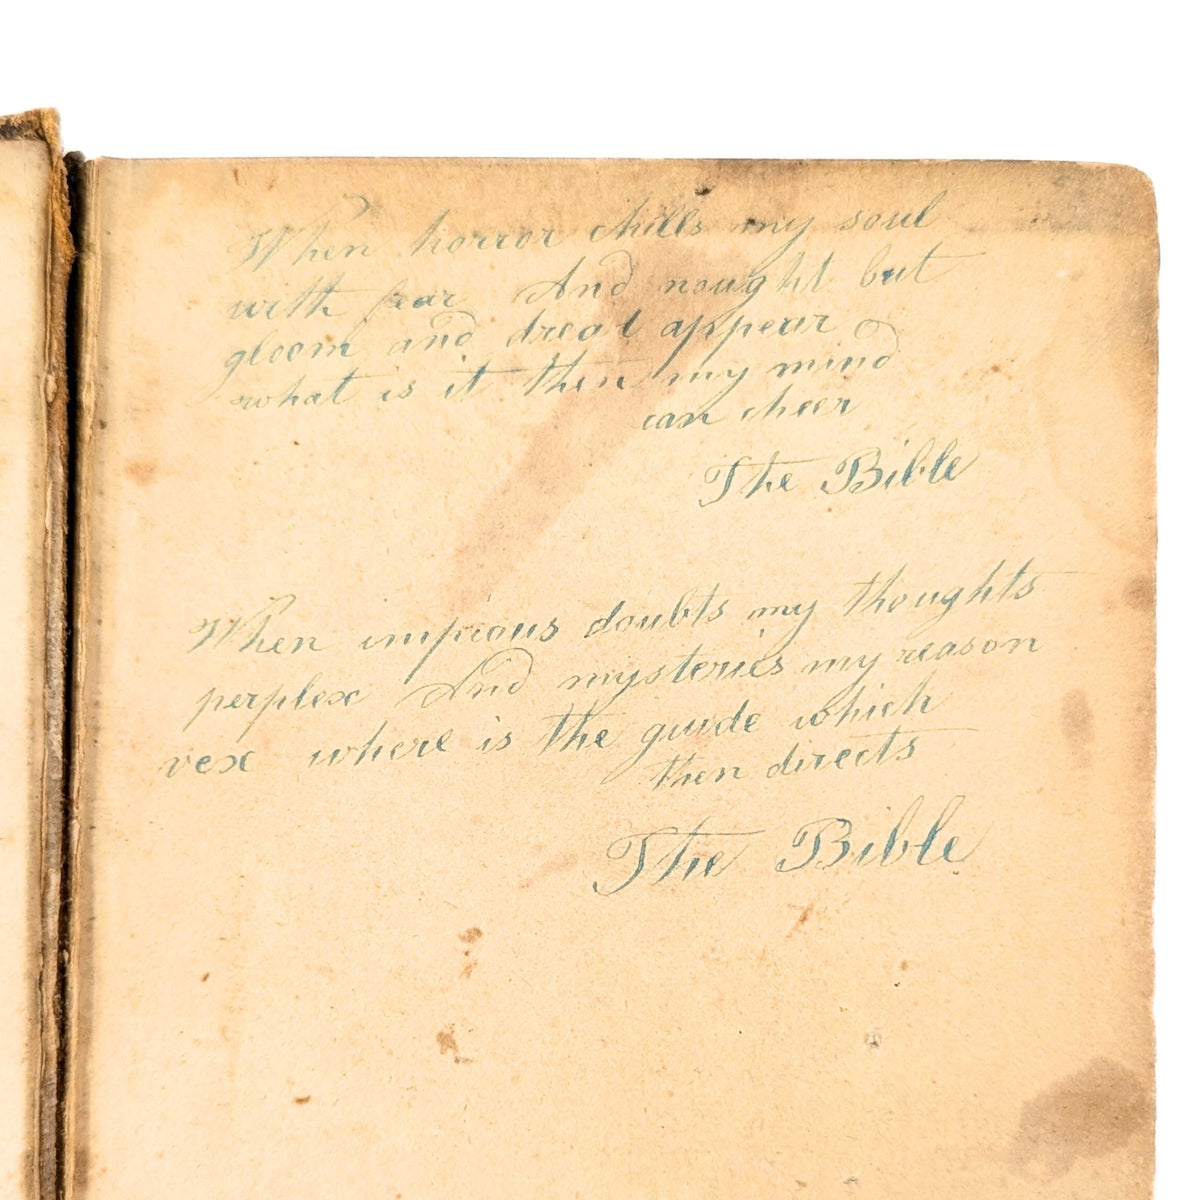 When horror chills my soul
with fear And nought but
gloom and dread appear
what is it then my mind
can cheer
The Bible
When impious doubts my thoughts
perplex And mysteries my reason
vex where is the guide which
then directs
The Bible